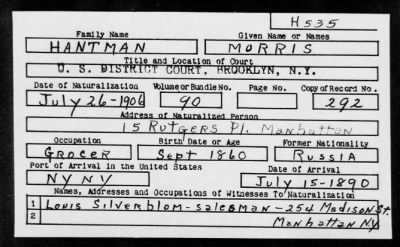 H535
Family Name Given Name or Names
HANTMAN MORRIS
Title and Location of Court
U. S. DISTRICT COURT, BROOKLYN, N.Y.
Date of Naturalization Volume or Bundle No. Page No. Copy of Record No.
July 26-1906 90 292
Address of Naturalized Person
15 Rutgers Pl. Manhattan
Occupation Birth Date or Age Former Nationality
GROCER Sept 1860 RUSSIA
Port of Arrival in the United States Date of Arrival
NY NY July 15-1890
Names, Addresses and Occupations of Witnesses To Naturalization
1 Louis Silverblom-salesman-254 Madison St.
2 Manhattan NY